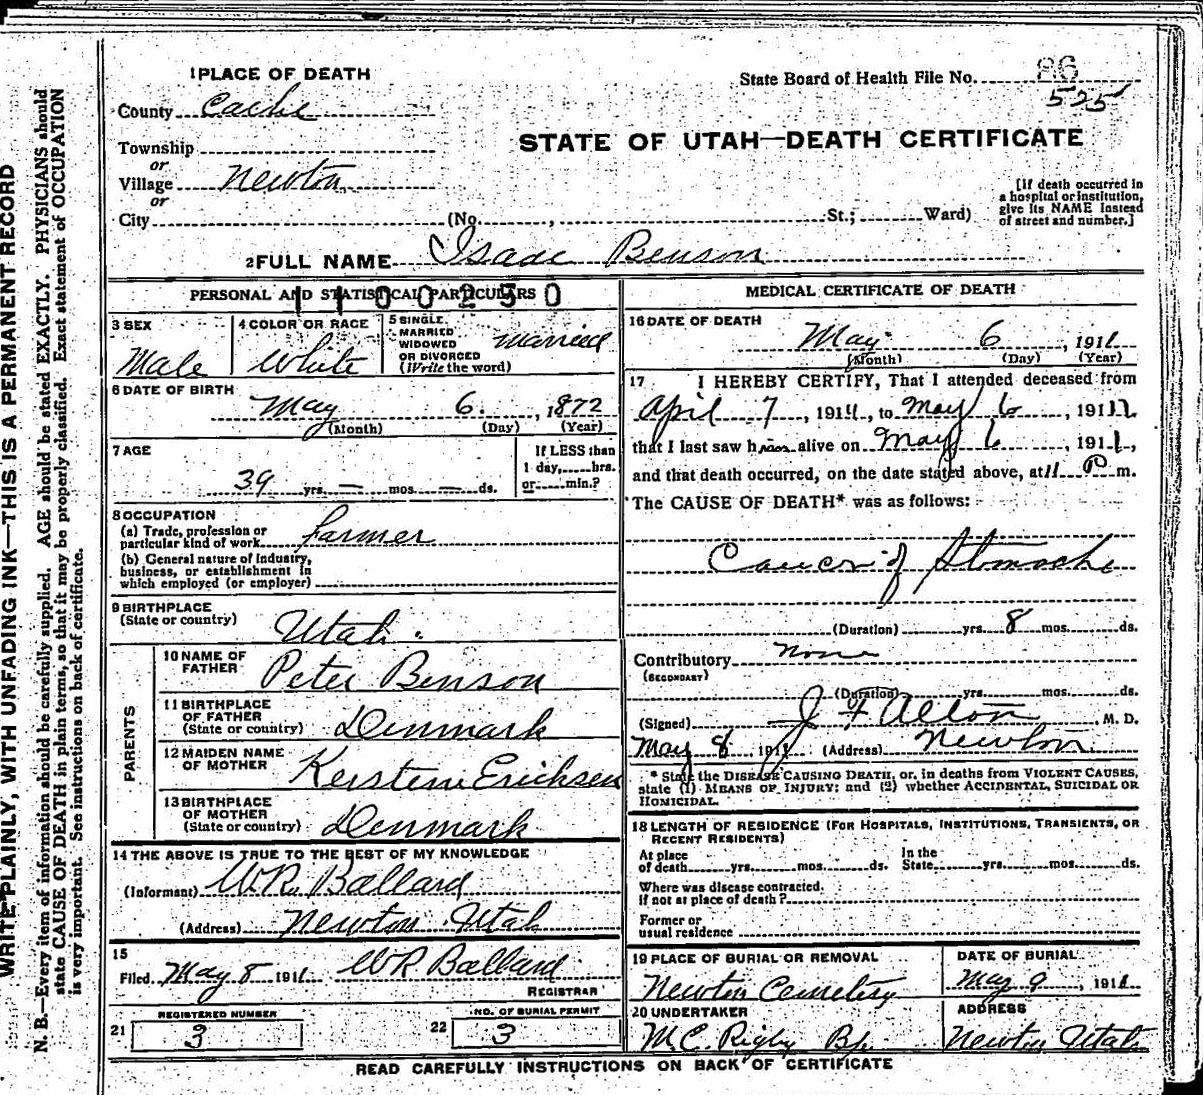 WRITE PLAINLY, WITH UNFADING INK—THIS IS A PERMANENT RECORD
N. B.—Every item of information should be carefully supplied. AGE should be stated EXACTLY. PHYSICIANS should
state CAUSE OF DEATH in plain terms, so that it may be properly classified. Exact statement of OCCUPATION
is very important. See instructions on back of certificate.
1 PLACE OF DEATH
State Board of Health File No. 86
525
County Cache
STATE OF UTAH—DEATH CERTIFICATE
Township
or
Village Newton
or
City (No. , St.; Ward)
[If death occurred in
a hospital or institution,
give its NAME instead
of street and number.]
2 FULL NAME Isaac Benson
PERSONAL AND STATISTICAL PARTICULARS
1100250
3 SEX
Male
4 COLOR OR RACE
White
5 SINGLE
MARRIED
WIDOWED
OR DIVORCED
(Write the word)
married
6 DATE OF BIRTH
May 6. , 1872
(Month) (Day) (Year)
7 AGE
39 yrs. — mos. — ds.
If LESS than
1 day, hrs.
or min.?
8 OCCUPATION
(a) Trade, profession or
particular kind of work farmer
(b) General nature of industry,
business, or establishment in
which employed (or employer)
9 BIRTHPLACE
(State or country)
Utah.
PARENTS
10 NAME OF
FATHER Peter Benson
11 BIRTHPLACE
OF FATHER
(State or country) Denmark
12 MAIDEN NAME
OF MOTHER Kerstene Ericksen
13 BIRTHPLACE
OF MOTHER
(State or country) Denmark
14 THE ABOVE IS TRUE TO THE BEST OF MY KNOWLEDGE
(Informant) W.R. Ballard
(Address) Newton Utah
15
Filed May 8 1911 WR Ballard
REGISTRAR
21 REGISTERED NUMBER
3
22 NO. OF BURIAL PERMIT
3
MEDICAL CERTIFICATE OF DEATH
16 DATE OF DEATH
May 6 , 1911
(Month) (Day) (Year)
17 I HEREBY CERTIFY, That I attended deceased from
April 7 , 1911, to May 6 , 1911,
that I last saw him alive on May 6 , 1911,
and that death occurred, on the date stated above, at 11 P m.
The CAUSE OF DEATH* was as follows:
Cancer of Stomache
(Duration) yrs. 8 mos. ds.
Contributory none
(SECONDARY)
(Duration) yrs. mos. ds.
(Signed) J F Alton M. D.
May 8 1911 (Address) Newton
* State the DISEASE CAUSING DEATH, or, in deaths from VIOLENT CAUSES,
state (1) MEANS OF INJURY; and (2) whether ACCIDENTAL, SUICIDAL OR
HOMICIDAL.
18 LENGTH OF RESIDENCE (FOR HOSPITALS, INSTITUTIONS, TRANSIENTS, OR
RECENT RESIDENTS)
At place
of death yrs. mos. ds.
In the
State yrs. mos. ds.
Where was disease contracted.
If not at place of death?
Former or
usual residence
19 PLACE OF BURIAL OR REMOVAL
Newton Cemetery
DATE OF BURIAL
May 9 , 1911
20 UNDERTAKER
M.C. Rigby Bp.
ADDRESS
Newton Utah
READ CAREFULLY INSTRUCTIONS ON BACK OF CERTIFICATE